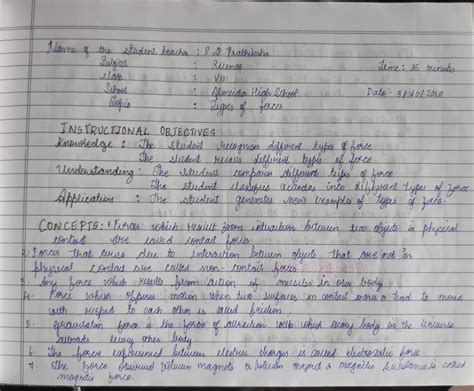 Name of the student teacher : P. D. Prathiksha
Subject : Science Time : 35 minutes
Class : VIII
School : Almeida High School Date - 3/10/2018
Topic : Types of forces
INSTRUCTIONAL OBJECTIVES
Knowledge : The student recognises different types of force
The student recalls different types of force
Understanding : The student compares different types of force
The student classifies actions into different types of force
Application : The student generates new examples of types of force.
CONCEPTS: 1. Forces which result from interaction between two objects in physical
contact are called contact forces.
2. Forces that arise due to interaction between objects that are not in
physical contact are called non-contact forces
3. Any force which results from action of muscles in our body.
4. Force which opposes motion when two surfaces in contact move or tend to move
with respect to each other is called friction.
5. Gravitation force is the force of attraction with which every body in the universe
attracts every other body.
6. The force experienced between electric charges is called electrostatic force.
7. The force between magnets or between magnet & magnetic substances is called
magnetic force.